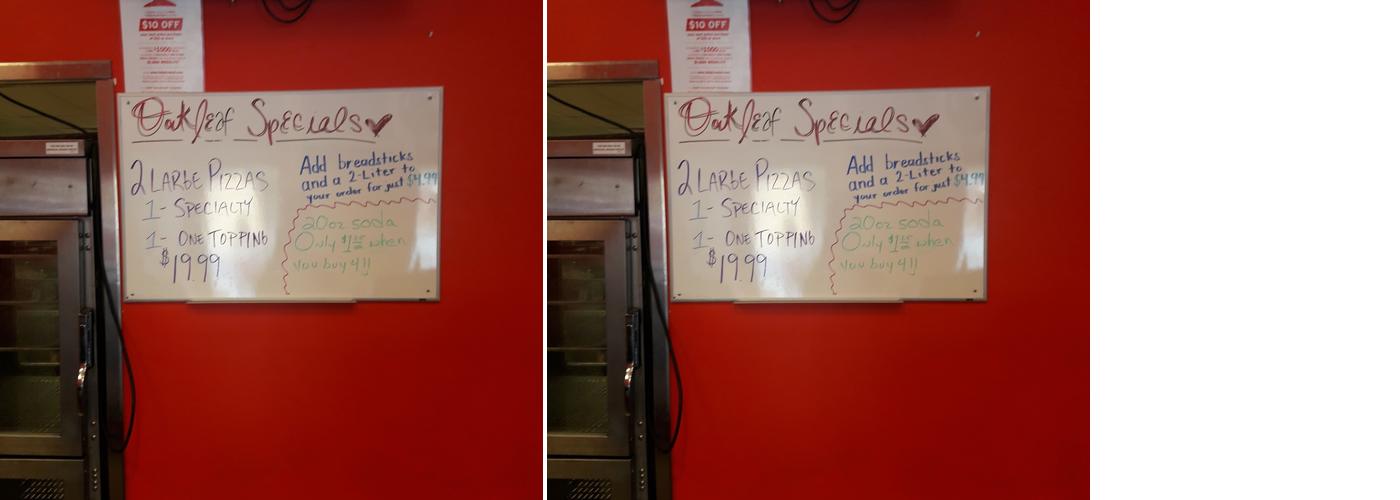 $10 OFF
$1000
Oakleaf Specials
2 LARGE PIZZAS
1- SPECIALTY
1- ONE TOPPING
$19.99
Add breadsticks
and a 2-Liter to
your order for just $4.99
20oz soda
Only when
you buy 4!!
$10 OFF
$1000
Oakleaf Specials
2 LARGE PIZZAS
1- SPECIALTY
1- ONE TOPPING
$19.99
Add breadsticks
and a 2-Liter to
your order for just $4.99
20oz soda
Only when
you buy 4!!